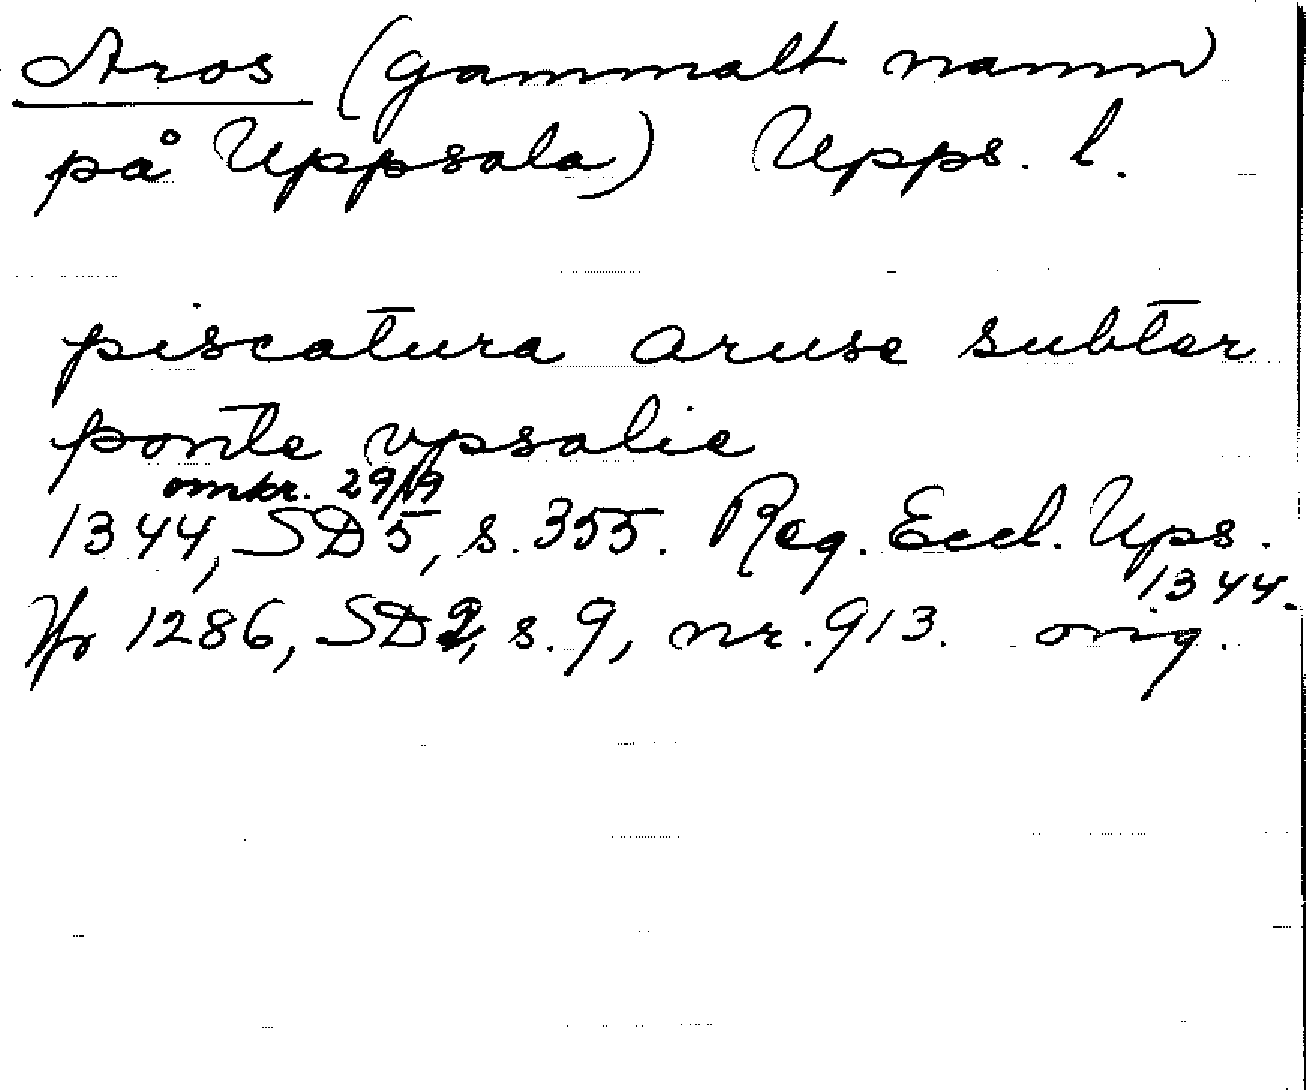 Aros (gammalt namn
på Uppsala) Upps. l.
piscatura aruse subter
ponte vpsalie
omkr. 29/9
1344, SD 5, s. 355. Reg. Eccl. Ups.
1344.
Jfr 1286, SD 2, s. 9, nr. 913. orig.